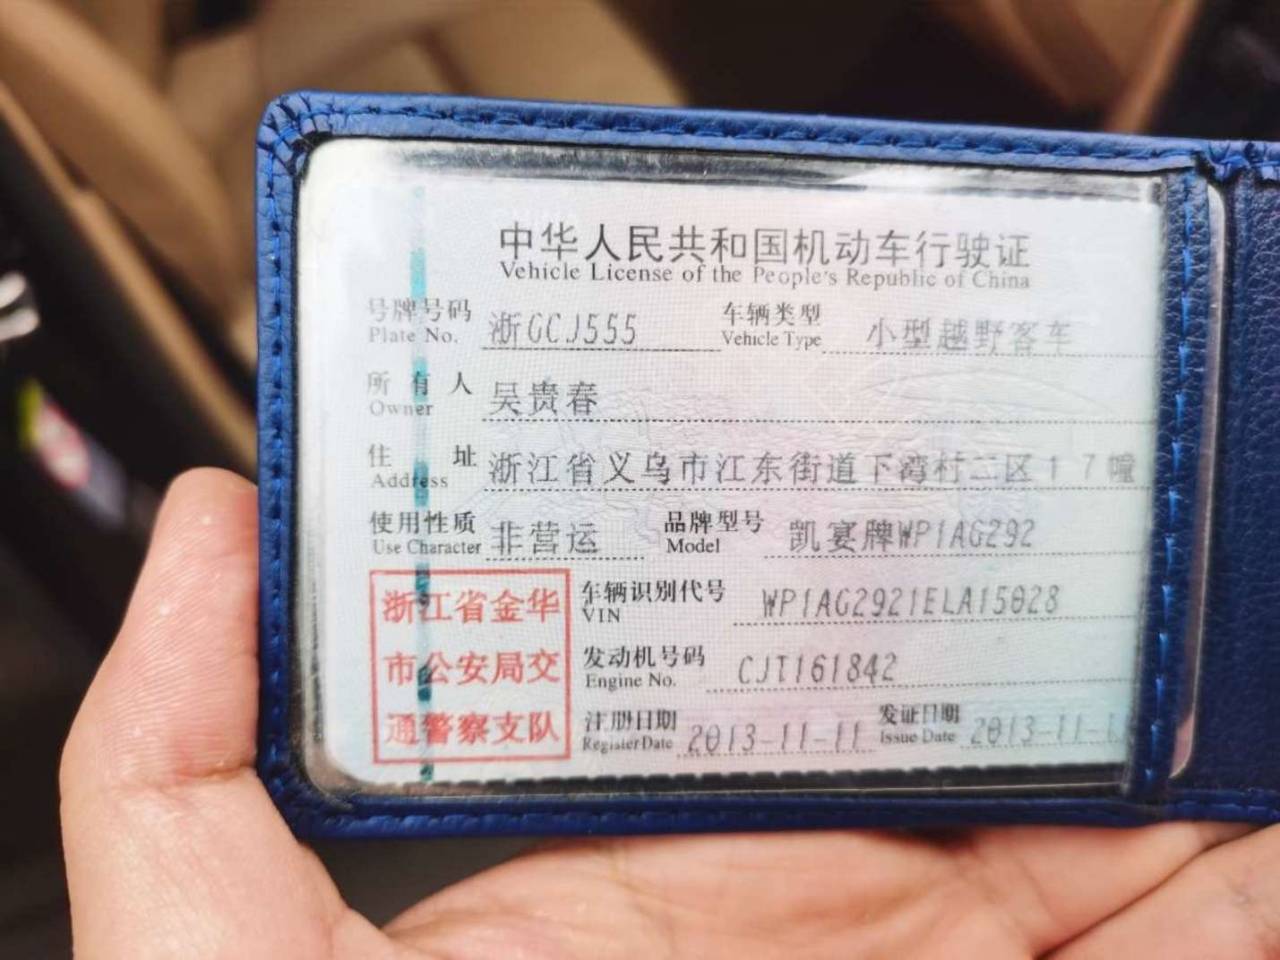 中华人民共和国机动车行驶证
Vehicle License of the People's Republic of China
号牌号码 浙GCJ555 车辆类型 小型越野客车
Plate No. Vehicle Type
所有人 吴贵春
Owner
住址 浙江省义乌市江东街道下湾村二区17幢
Address
使用性质 非营运 品牌型号 凯宴牌WP1AG292
Use Character Model
浙江省金华
市公安局交
通警察支队
车辆识别代号 WP1AG2921ELA15028
VIN
发动机号码 CJT161842
Engine No.
注册日期 2013-11-11 发证日期 2013-11-1
Register Date Issue Date